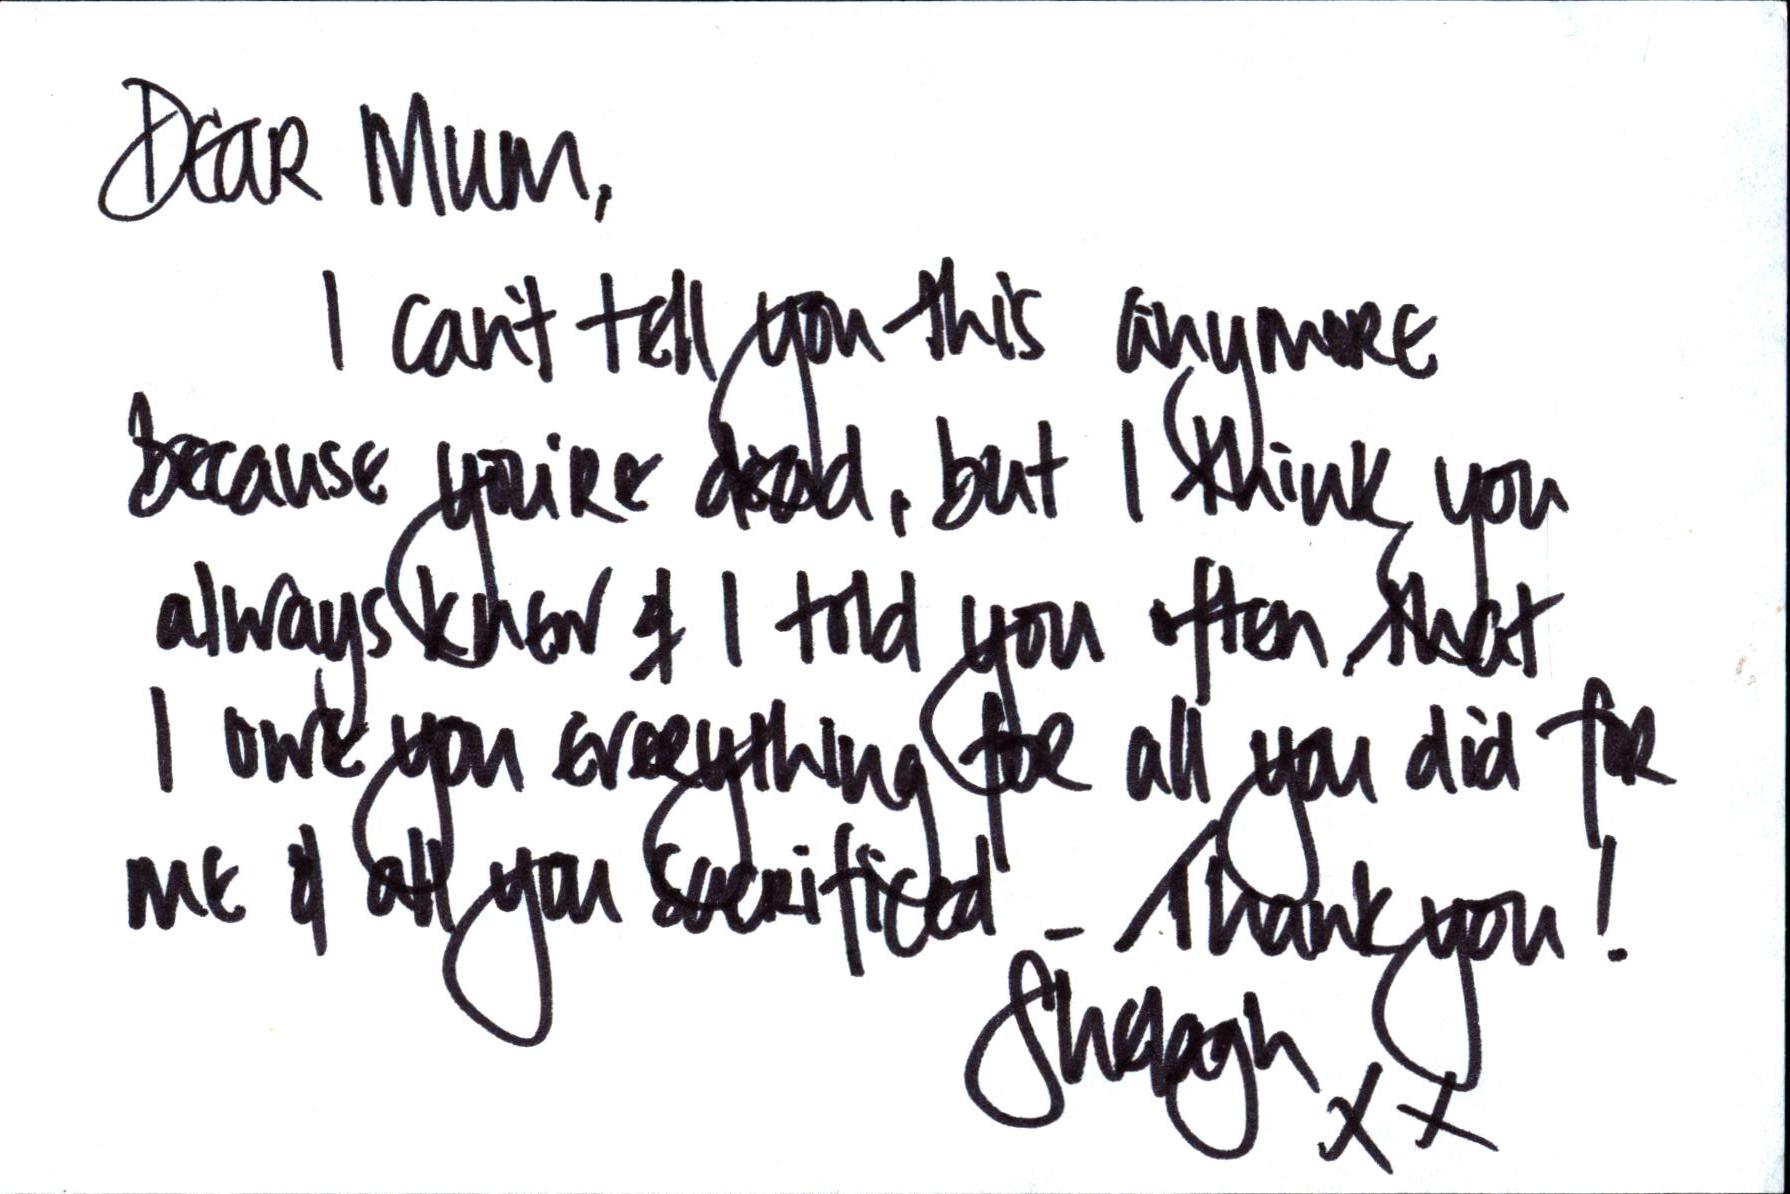 Dear Mum,
I can't tell you this anymore
because you're dead, but I think you
always knew & I told you often that
I owe you everything for all you did for
me & all you sacrificed - Thank you!
Shelagh xx